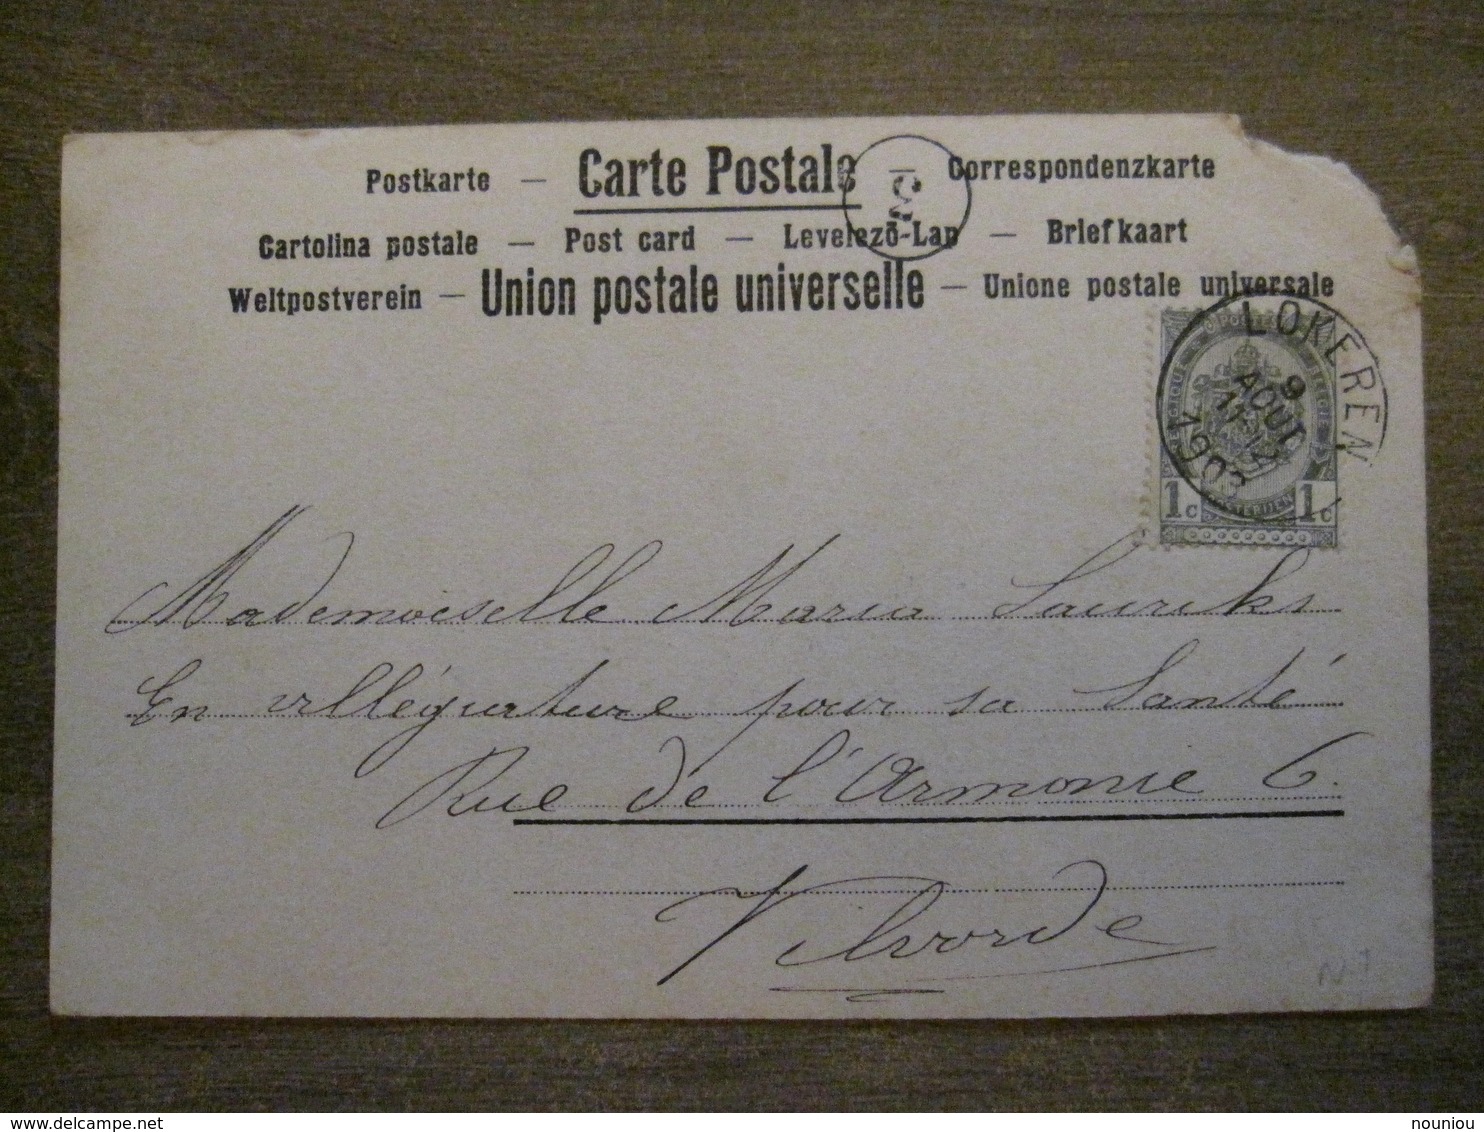 Postkarte — Carte Postale — Correspondenzkarte
Cartolina postale — Post card — Levelezö-Lap — Briefkaart
Weltpostverein — Union postale universelle — Unione postale universale
LOKEREN
9
AOUT
11-12
1903
1c 1c
Mademoiselle Maria Lauriks
En villégiature pour sa Santé
Rue de l'Armonie 6.
Vilvorde
N.7
nouniou